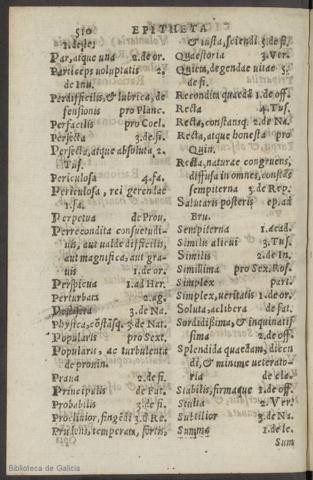 510 EPITHETA
1.de le:
Par, atque una 2.de or.
Particeps voluptatis 2.
de Inu.
Perdifficilis, & lubrica, de
fensionis pro Planc.
Perfacilis pro Coel.
Perfecta 3.de.fi.
Perfecta, atque absoluta 2.
Tus.
Periculosa 4.fa.
Periculosa, rei gerendae
1.fa.
Perpetua de Prou.
Perrecondita consuetudi-
nis, aut ualde difficilis,
aut magnifica, aut gra-
uis 1.de or.
Perspicua 1.ad Her.
Perturbata 2.ag.
Pestifera 3.de Na.
Physica, cōstāsq́. 3 de Nat.
Popularis pro Sext.
Popularis, ac turbulenta
de pronin.
Praua 2.de fi.
Principalis de Fat.
Probabilis 3.de fi.
Procliuior, fingēdi 3.d Re.
Prudens, temperata, fortis,
& iusta, sciendi 5.de fi.
Quaestoria 3.Ver.
Quieta, degendae uitae 5.
de fi.
Recondita quaedā 1.de off.
Recta 4.Tus.
Recta, constansq́. 2.de Na.
Recta, atque honesta pro
Quin.
Recta, naturae congruens,
diffusa in omnes, constās
sempiterna 3.de Rep.
Salutaris posteris ep.ad
Bru.
Sempiterna 1.acad.
Similis alicui 3.Tus.
Similis 2.de In.
Simillima pro Sex.Ros.
Simplex part.
Simplex, ueritatis 1.de or.
Soluta, ac libera de Fat.
Sordidissima, & inquinatis
sima 2.de off.
Splendida quaedam, dicen
di, & minime ueterato-
ria de cla.
Stabilis, firmaque 1.de off.
Stulta 2.Ver.
Subtilior 3.de Na.
Summa 1.de le.
Sum
Biblioteca de Galicia